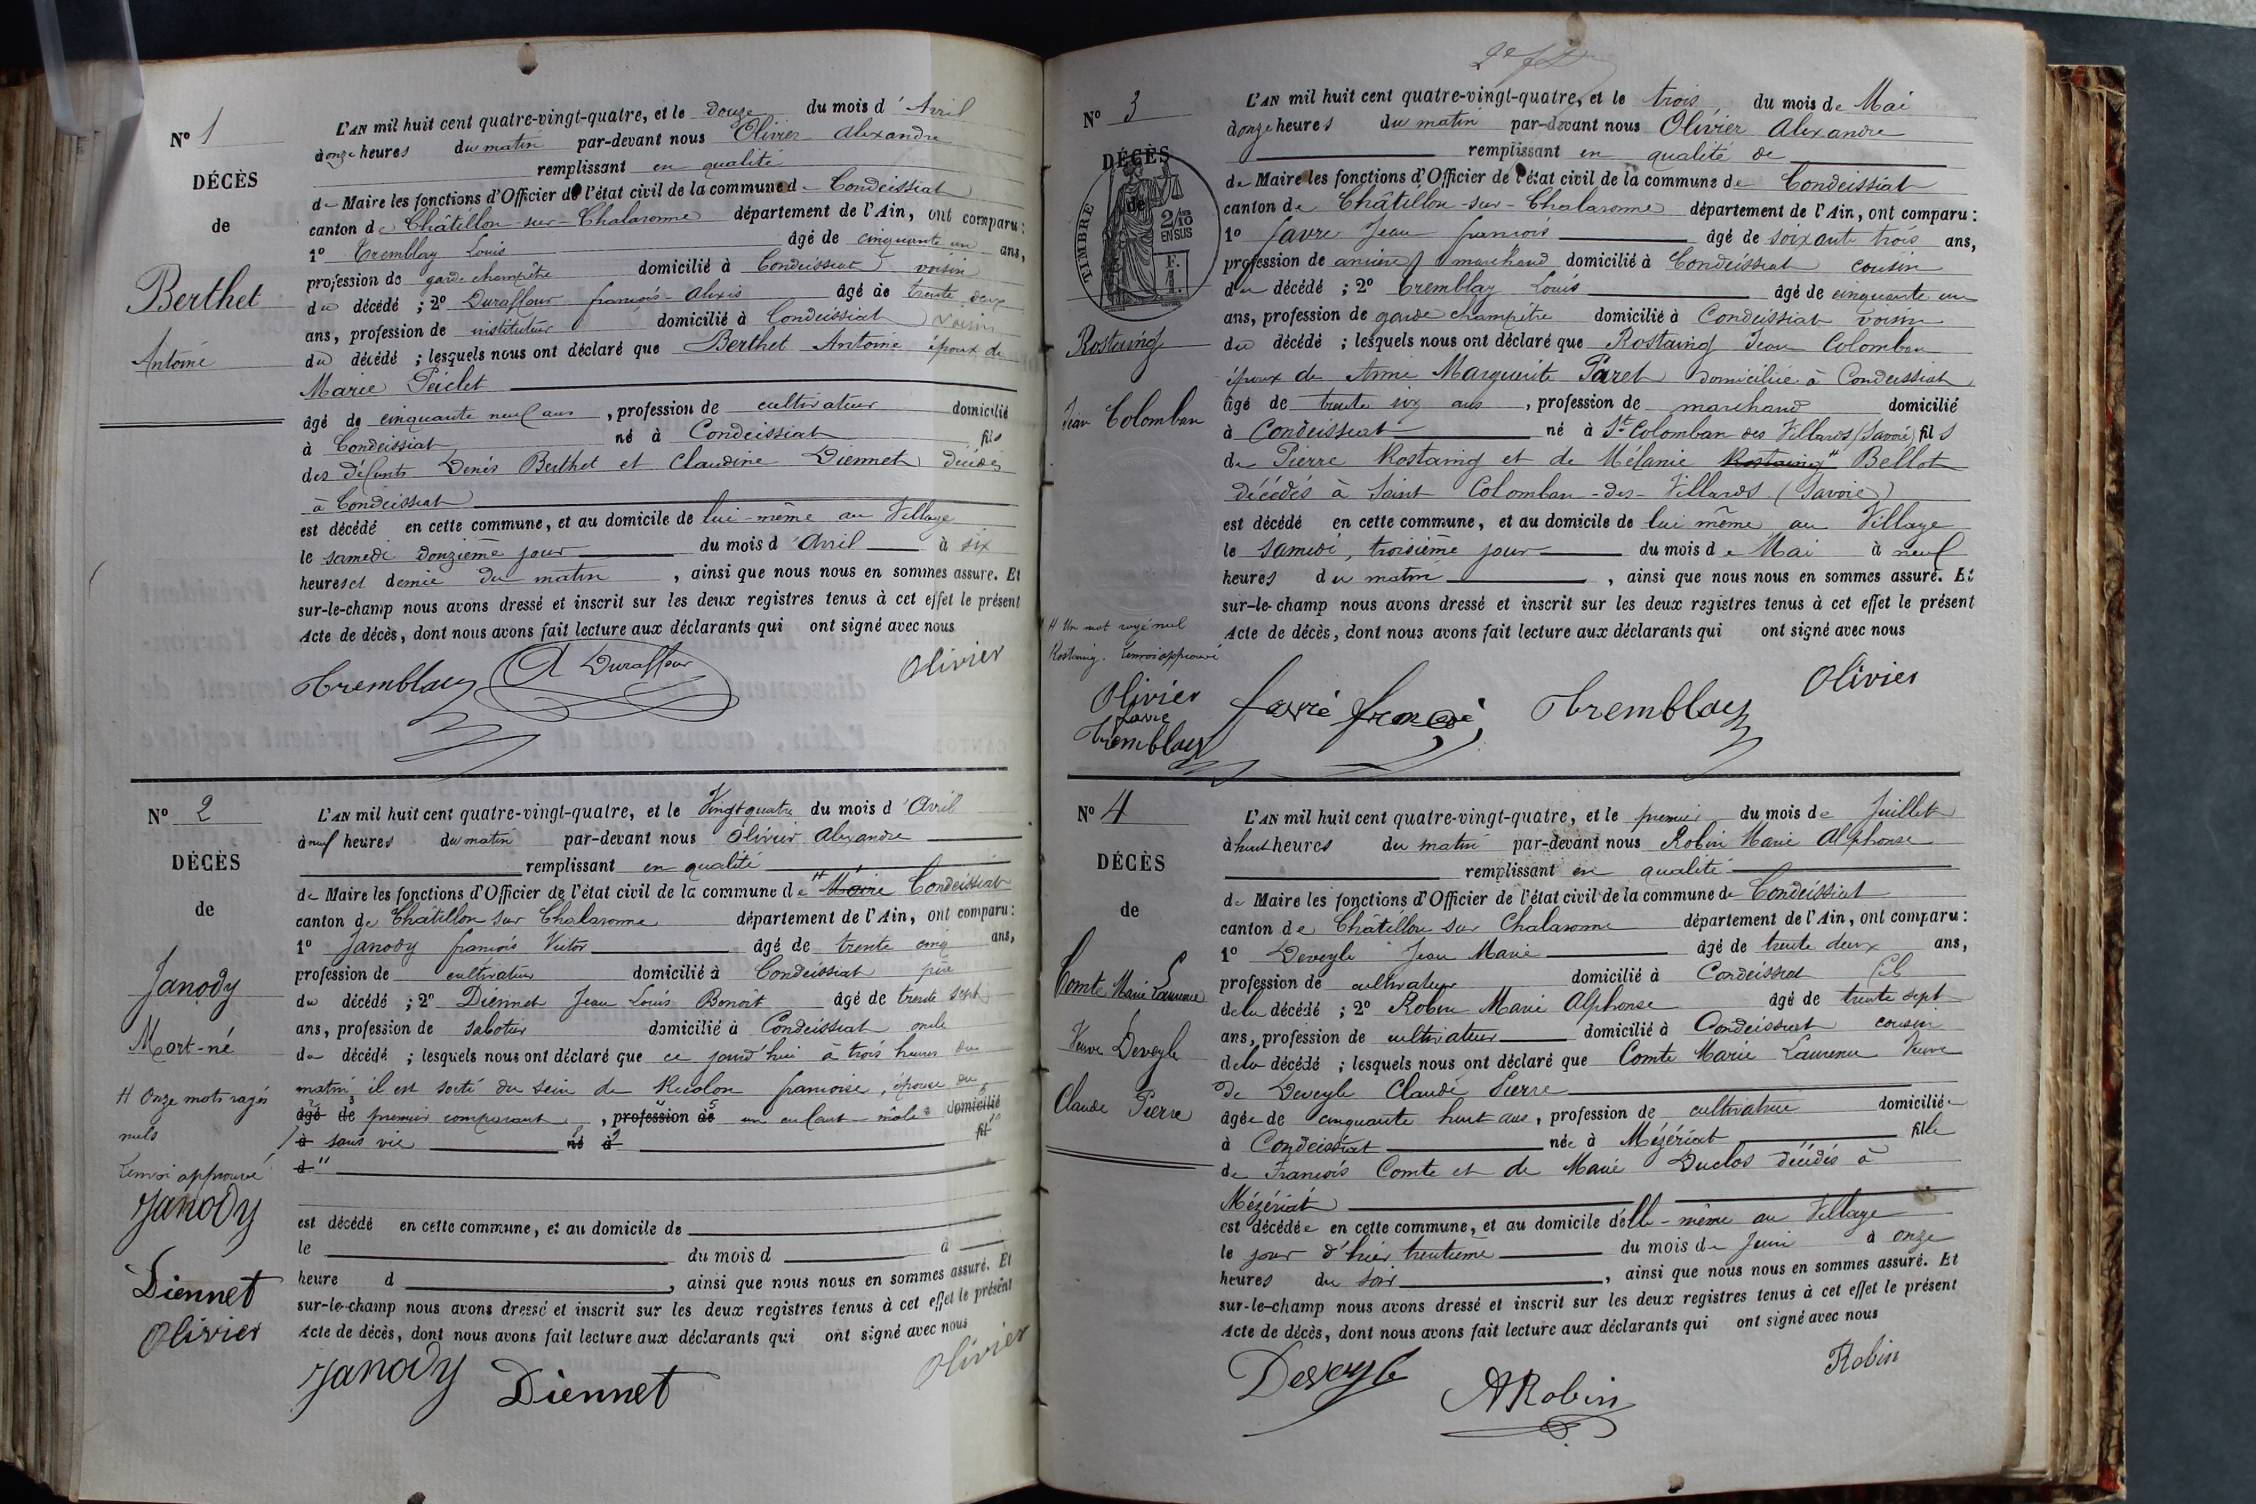 N° 1
DÉCÈS
de
Berthet
Antoine
L'AN mil huit cent quatre-vingt-quatre, et le douze du mois d'Avril
à onze heures du matin par-devant nous Olivier Alexandre
remplissant en qualité
de Maire les fonctions d'Officier de l'état civil de la commune de Condeissiat
canton de Châtillon-sur-Chalaronne département de l'Ain, ont comparu :
1° Tremblay Louis âgé de cinquante un ans,
profession de garde champêtre domicilié à Condeissiat voisin
du décédé ; 2° Duraffour françois-Alexis âgé de trente deux
ans, profession de instituteur domicilié à Condeissiat voisin
du décédé ; lesquels nous ont déclaré que Berthet Antoine époux de
Marie Péclet
âgé de cinquante neuf ans, profession de cultivateur domicilié
à Condeissiat né à Condeissiat fils
des défunts Denis Berthet et Claudine Diennet décédés
à Condeissiat
est décédé en cette commune, et au domicile de lui-même au Village
le samedi douzième jour du mois d'Avril à six
heures et demie du matin, ainsi que nous nous en sommes assuré. Et
sur-le-champ nous avons dressé et inscrit sur les deux registres tenus à cet effet le présent
Acte de décès, dont nous avons fait lecture aux déclarants qui ont signé avec nous
Tremblay A Duraffour Olivier
N° 2
DÉCÈS
de
Janody
Mort-né
H Onze mots rayés
nuls
Renvoi approuvé
Janody
Diennet
Olivier
L'AN mil huit cent quatre-vingt-quatre, et le Vingt quatre du mois d'Avril
à neuf heures du matin par-devant nous Olivier Alexandre
remplissant en qualité
de Maire les fonctions d'Officier de l'état civil de la commune de Maire Condeissiat
canton de Châtillon sur Chalaronne département de l'Ain, ont comparu :
1° Janody françois Victor âgé de trente cinq ans,
profession de cultivateur domicilié à Condeissiat père
du décédé ; 2° Diennet Jean Louis Benoit âgé de trente sept
ans, profession de sabotier domicilié à Condeissiat oncle
du décédé ; lesquels nous ont déclaré que ce jourd'hui à trois heures du
matin, il est sorti du sein de françoise, épouse du
âgé de premier comparant, profession de un enfant mâle domicilié
à sans vie né à fil
d
est décédé en cette commune, et au domicile de
le du mois d à
heure d , ainsi que nous nous en sommes assuré. Et
sur-le-champ nous avons dressé et inscrit sur les deux registres tenus à cet effet le présent
Acte de décès, dont nous avons fait lecture aux déclarants qui ont signé avec nous
Janody Diennet Olivier
N° 3
DÉCÈS
de
TIMBRE
2/10 EN SUS
F.
1
Rostaing
Jean Colomban
H Un mot rayé nul
Rostaing. Renvoi approuvé
Olivier
favre
Tremblay
L'AN mil huit cent quatre-vingt-quatre, et le trois du mois de Mai
à onze heures du matin par-devant nous Olivier Alexandre
remplissant en qualité de
de Maire les fonctions d'Officier de l'état civil de la commune de Condeissiat
canton de Châtillon-sur-Chalaronne département de l'Ain, ont comparu :
1° favre Jean françois âgé de soixante trois ans,
profession de ancien marchand domicilié à Condeissiat cousin
du décédé ; 2° Tremblay Louis âgé de cinquante un
ans, profession de garde champêtre domicilié à Condeissiat voisin
du décédé ; lesquels nous ont déclaré que Rostaing Jean Colomban
époux de Anne Marguerite Paret domiciliée à Condeissiat
âgé de trente six ans, profession de marchand domicilié
à Condeissiat né à St Colomban des Villards (Savoie) fils
de Pierre Rostaing et de Mélanie Rostaing Bellot
décédés à Saint-Colomban-des-Villards (Savoie)
est décédé en cette commune, et au domicile de lui même au Village
le samedi, troisième jour du mois de Mai à neuf
heures du matin, ainsi que nous nous en sommes assuré. Et
sur-le-champ nous avons dressé et inscrit sur les deux registres tenus à cet effet le présent
Acte de décès, dont nous avons fait lecture aux déclarants qui ont signé avec nous
favre françois Tremblay Olivier
N° 4
DÉCÈS
de
Comte Marie Laurence
Veuve Deveyle
Claude Pierre
L'AN mil huit cent quatre-vingt-quatre, et le premier du mois de Juillet
à huit heures du matin par-devant nous Robin Marie Alphonse
remplissant en qualité
de Maire les fonctions d'Officier de l'état civil de la commune de Condeissiat
canton de Châtillon sur Chalaronne département de l'Ain, ont comparu :
1° Deveyle Jean Marie âgé de trente deux ans,
profession de cultivateur domicilié à Condeissiat fils
de la décédé ; 2° Robin Marie Alphonse âgé de trente sept
ans, profession de cultivateur domicilié à Condeissiat cousin
de la décédé ; lesquels nous ont déclaré que Comte Marie Laurence Veuve
de Deveyle Claude Pierre
âgée de cinquante huit ans, profession de cultivatrice domiciliée
à Condeissiat née à Mézériat fille
de François Comte et de Marie Duclos décédés à
Mézériat
est décédée en cette commune, et au domicile d'elle-même au Village
le jour d'hier trentième du mois de Juin à onze
heures du soir, ainsi que nous nous en sommes assuré. Et
sur-le-champ nous avons dressé et inscrit sur les deux registres tenus à cet effet le présent
Acte de décès, dont nous avons fait lecture aux déclarants qui ont signé avec nous
Deveyle ARobin Robin